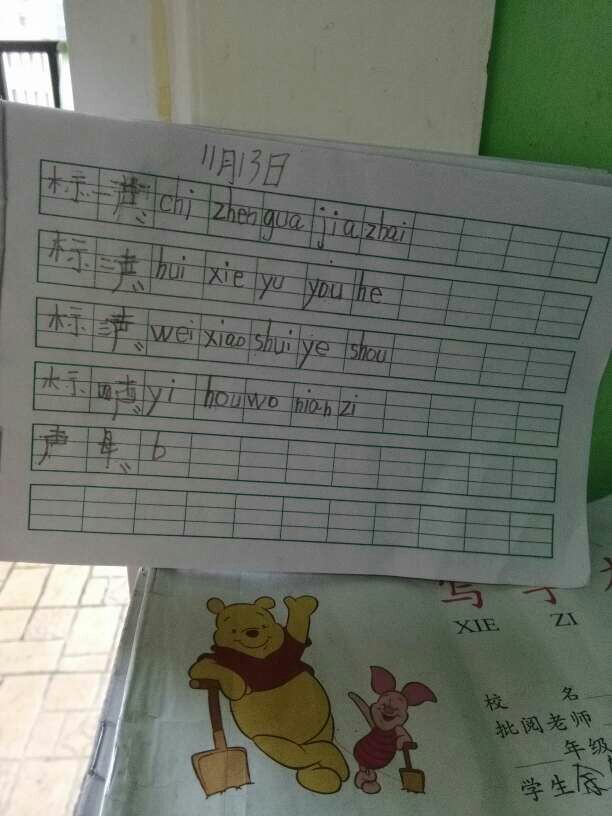 11月13日
标一声: chi zhen gua jia zhai
标二声: hui xie yu you he
标三声: wei xiao shui ye shou
标四声: yi hou wo nian zi
声母: b
写字
XIE ZI
校 名
批阅老师
年级
学生